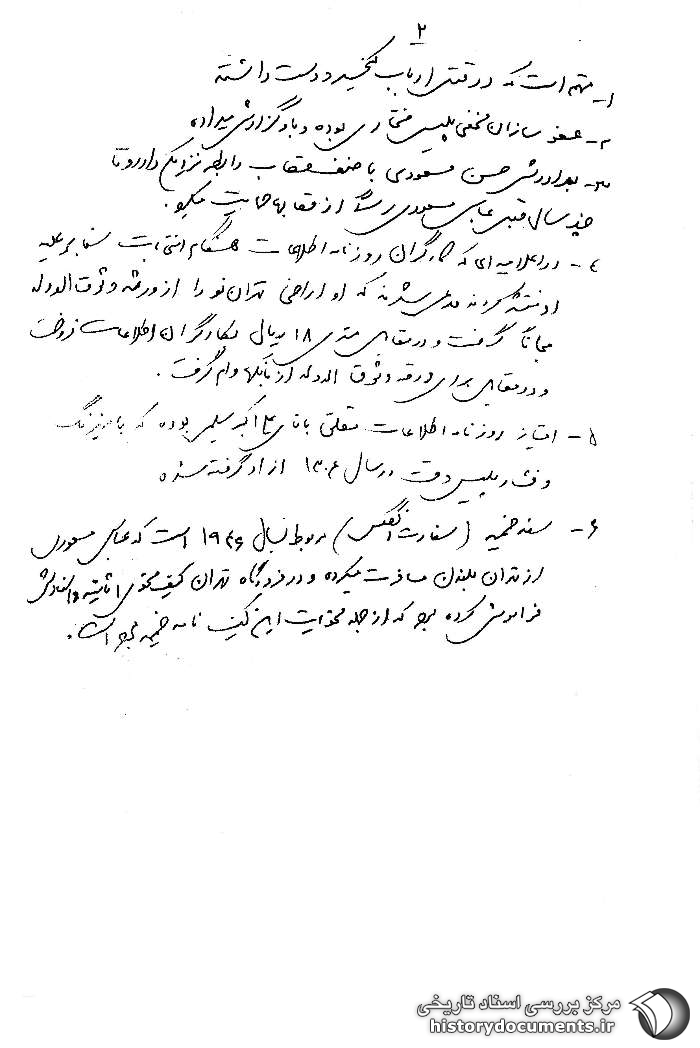 ۲
۱- متهم است که در قتل ارباب کیخسرو دست داشته
۲- عضو سازمان مخفی پلیس مختاری بوده و باو گزارش میداده
۳- برادرش حسن مسعودی با صنف قصاب رابطه نزدیک دارد و تا
چند سال قبل عباس مسعودی رسماً از قصابها حمایت میکرد.
۴- در اعلامیه‌ای که کارگران روزنامه اطلاعات هنگام انتخابات سنا بر علیه
او منتشر کردند مدعی شدند که او اراضی تهران نو را از ورثه وثوق الدوله
مجاناً گرفت و در مقابل متری ۱۸ ریال بکارگران اطلاعات فروخت
و در مقابل برای ورثه وثوق الدوله از بانکها وام گرفت.
۵- امتیاز روزنامه اطلاعات متعلق بآقای علی اکبر سلیمی بوده که با نیرنگ
و فشار پلیس وقت در سال ۱۳۰۶ از او گرفته شده
۶- سند ضمیمه (سفارت انگلیس) مربوط بسال ۱۹۴۶ است که عباس مسعودی
از تهران بلندن مسافرت میکرده و در فرودگاه تهران کیف محتوی اثاثیه و اسنادش
فراموش کرده بود که از جمله محتویات این کیف نامه ضمیمه بوده است.
مرکز بررسی اسناد تاریخی
historydocuments.ir